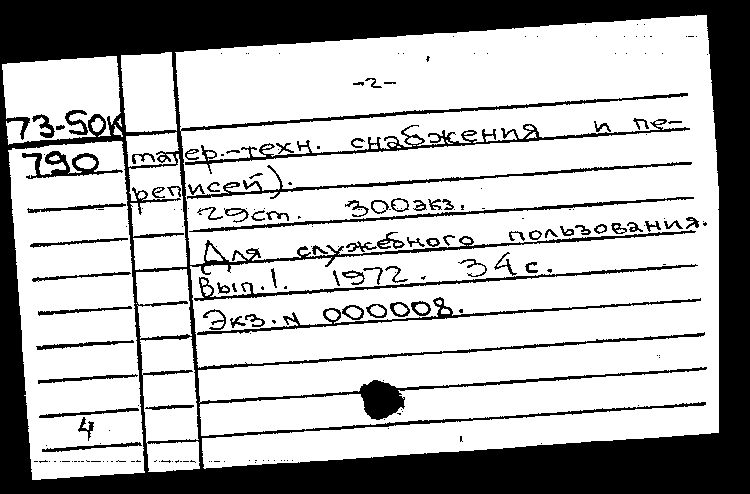 -2-
73-50К
790
матер.-техн. снабжения и пе-
реписей).
29см. 300экз.
Для служебного пользования.
Вып.1. 1972. 34с.
Экз.N 000008.
4